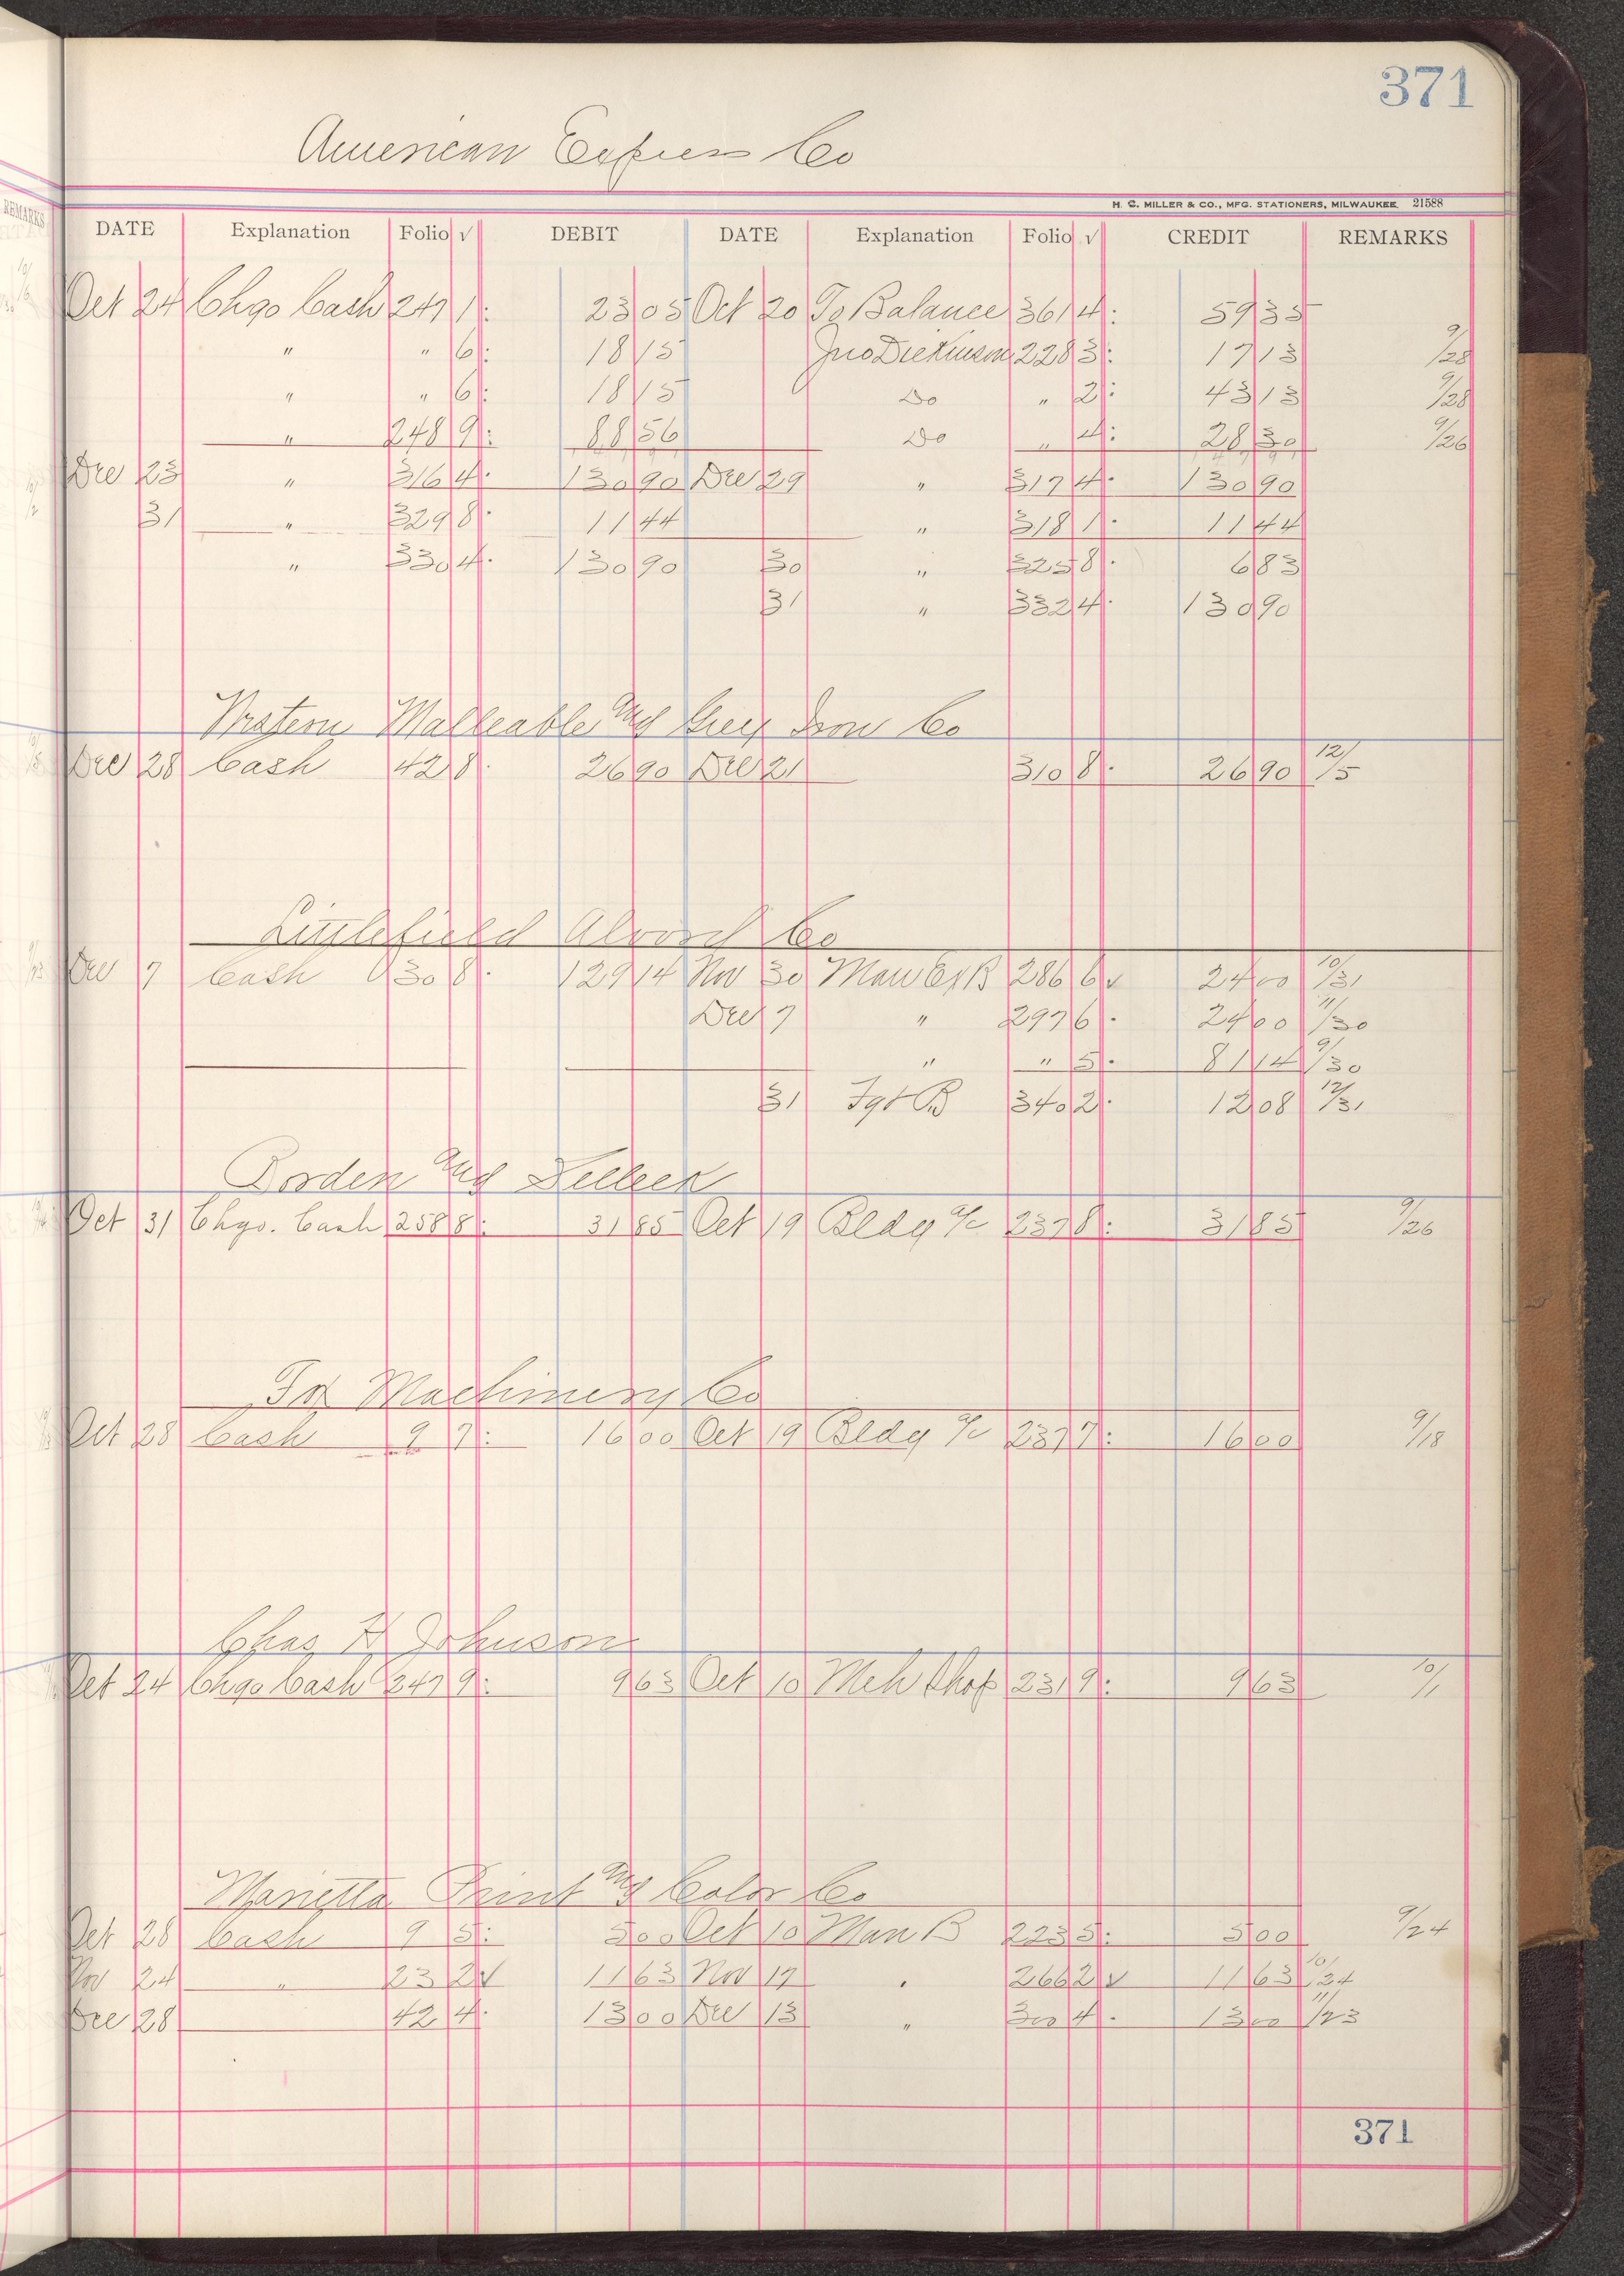 371
American Express Co
H. C. MILLER & CO., MFG. STATIONERS, MILWAUKEE 21588
REMARKS
DATE Explanation Folio √ DEBIT DATE Explanation Folio √ CREDIT REMARKS
Oct 24 Chgo Cash 247 1: 23 05 Oct 20 To Balance 361 4: 59 35
" " 6: 18 15 Jno Dickinson 228 3: 17 13 9/28
" " 6: 18 15 Do " 2: 43 13 9/28
" 248 9: 88 56 Do " 4: 28 30 9/26
Dec 23 " 316 4. 130 90 Dec 29 " 317 4. 130 90
31 " 329 8. 11 44 " 318 1. 11 44
" 330 4. 130 90 30 " 325 8. 6 83
31 " 332 4. 130 90
Western Malleable and Grey Iron Co
Dec 28 Cash 42 8. 26 90 Dec 21 310 8. 26 90 12/5
Littlefield Alvord Co
Dec 7 Cash 30 8. 129 14 Nov 30 Man Ex B 286 6 v 24 00 10/31
Dec 7 " 297 6. 24 00 11/30
" " 5. 81 14 9/30
31 Fgt B 340 2. 12 08 12/31
Borden and Selleck
Oct 31 Chgo. Cash 258 8: 31 85 Oct 19 Bldg a/c 237 8: 31 85 9/26
Fox Machinery Co
Oct 28 Cash 9 7: 16 00 Oct 19 Bldg a/c 237 7: 16 00 9/18
Chas H Johnson
Oct 24 Chgo Cash 247 9: 9 63 Oct 18 Mch Shop 231 9: 9 63 10/1
Marietta Paint and Color Co
Oct 28 Cash 9 5: 5 00 Oct 10 Man B 223 5: 5 00 9/24
Nov 24 " 23 2 v 11 63 Nov 17 " 266 2 v 11 63 10/24
Dec 28 42 4. 13 00 Dec 13 " 300 4. 13 00 11/23
371